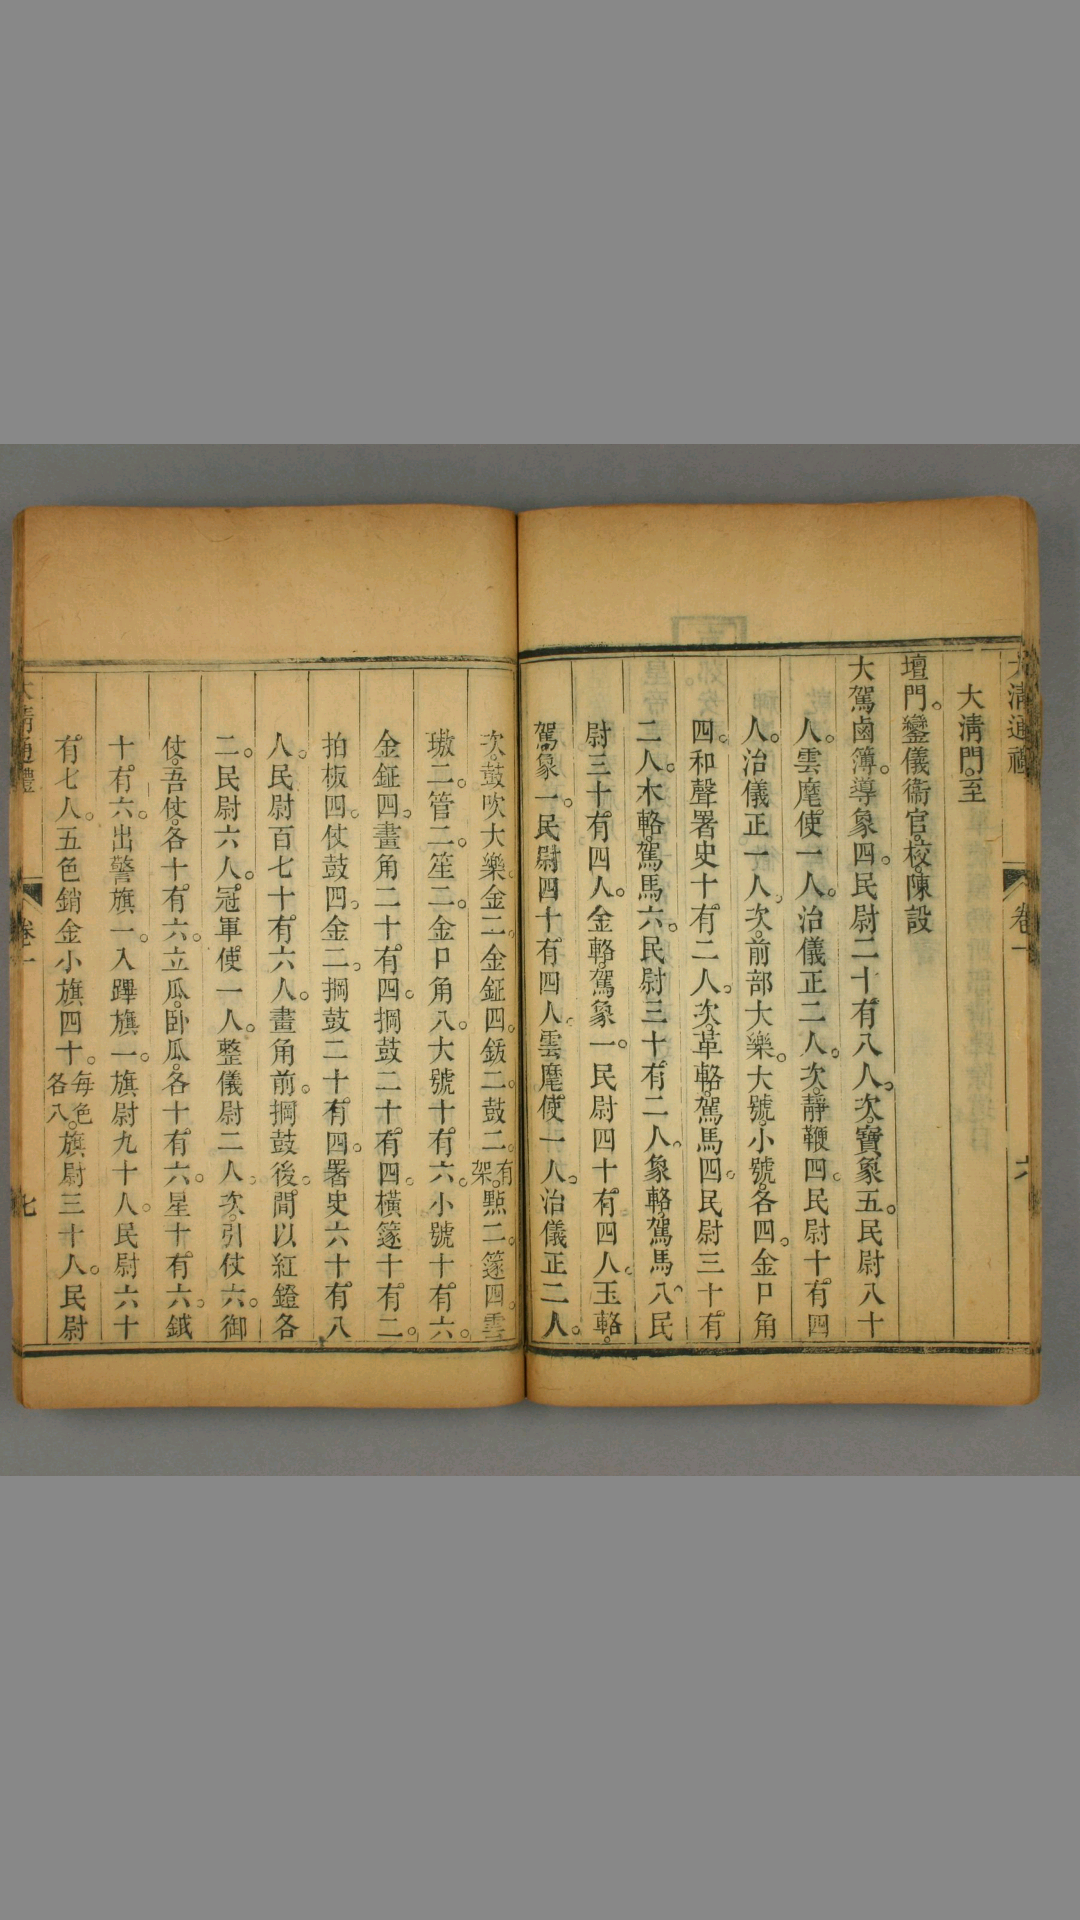 大淸通禮
卷一
六
大淸門。至
壇門。鑾儀衞官校。陳設
大駕鹵簿。導象四。民尉二十有八人。次寶象五。民尉八十
人。雲麾使一人。治儀正二人。次靜鞭四。民尉十有四
人。治儀正一人。次前部大樂。大號。小號。各四。金口角
四。和聲署史十有二人。次革輅。駕馬四。民尉三十有
二人。木輅。駕馬六。民尉三十有二人。象輅。駕馬八。民
尉三十有四人。金輅。駕象一。民尉四十有四人。玉輅。
駕象一。民尉四十有四人。雲麾使一人。治儀正二人。
次鼓吹大樂。金二。金鉦四。鈸二。鼓二。有架。點二。篴四。雲
璈二。管二。笙二。金口角八。大號十有六。小號十有六。
金鉦四。畫角二十有四。掆鼓二十有四。橫篴十有二。
拍板四。仗鼓四。金二。掆鼓二十有四。署史六十有八
人。民尉百七十有六人。畫角前。掆鼓後。間以紅鐙各
二。民尉六人。冠軍使一人。整儀尉二人。次引仗六。御
仗。吾仗。各十有六。立瓜。卧瓜。各十有六。星十有六。鉞
十有六。出警旗一。入蹕旗一。旗尉九十人。民尉六十
有七人。五色銷金小旗四十。每色各八。旗尉三十人。民尉
大淸通禮
卷一
七